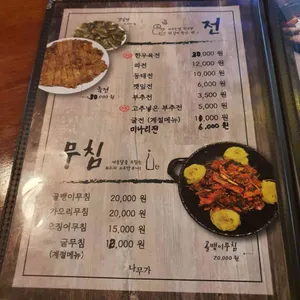 전
한우육전 20,000 원
파전 12,000 원
동태전 10,000 원
깻잎전 6,000 원
부추전 3,500 원
고추넣은 부추전 5,000 원
굴전 (계절메뉴) 10,000 원
미나리전 6,000 원
육전
무침
골뱅이무침 20,000 원
가오리무침 20,000 원
오징어무침 15,000 원
굴무침 원
(계절메뉴)
골뱅이무침
나무가